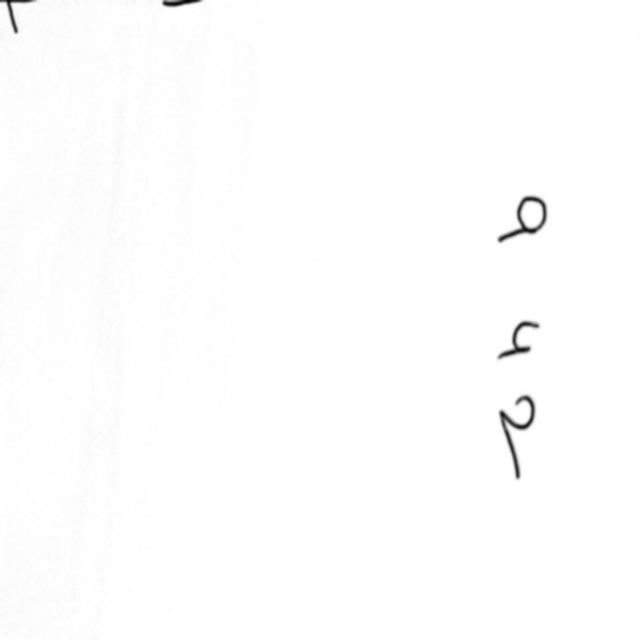 9 4 2